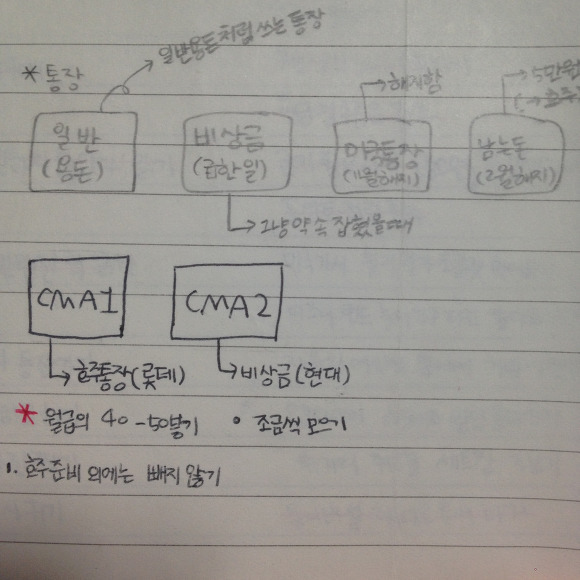 일반용돈처럼 쓰는 통장
* 통장
해지함
5만원
일반
(용돈)
비상금
(급한일)
미국통장
(1월해지)
남는돈
(2월해지)
그냥 약속 잡혔을때
CMA1
CMA2
호주통장(롯데)
비상금(현대)
* 월급의 40-50붙기
• 조금씩 모으기
1. 호주준비 외에는 빼지 않기